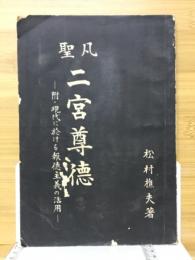 凡聖
二宮尊徳
―附・現代に於ける報徳主義の活用―
松村雄夫著